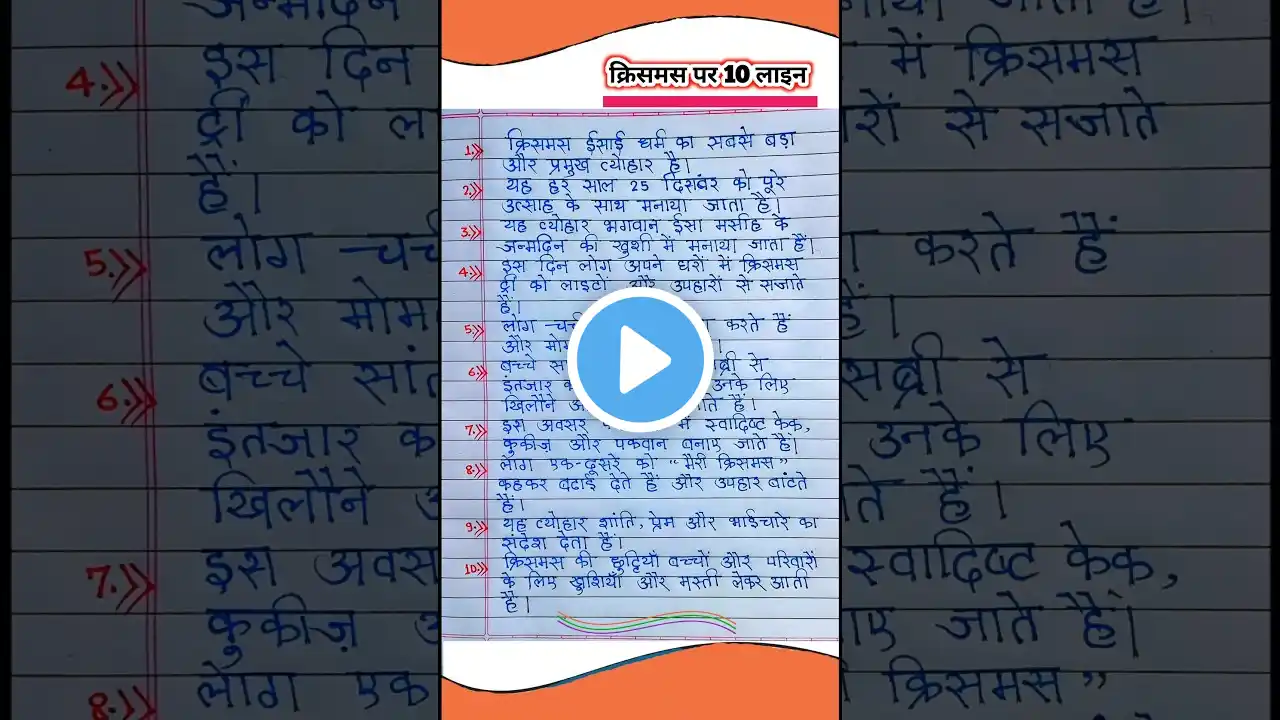 क्रिसमस पर 10 लाइन
1. क्रिसमस ईसाई धर्म का सबसे बड़ा
और प्रमुख त्योहार है।
2. यह हर साल 25 दिसंबर को पूरे
उत्साह के साथ मनाया जाता है।
3. यह त्योहार भगवान ईसा मसीह के
जन्मदिन की खुशी में मनाया जाता है।
4. इस दिन लोग अपने घरों में क्रिसमस
ट्री को लाइटों और उपहारों से सजाते
हैं।
5. लोग करते हैं
और
6. बच्चे से
इंतजार उनके लिए
खिलौने हैं।
7. इस अवसर में स्वादिष्ट केक,
कुकीज़ और पकवान बनाए जाते हैं।
8. लोग एक-दूसरे को "मैरी क्रिसमस"
कहकर बढाई देते हैं और उपहार बांटते
हैं।
9. यह त्योहार शांति, प्रेम और भाईचारे का
संदेश देता है।
10. क्रिसमस की छुट्टियाँ बच्चों और परिवारों
के लिए खुशियाँ और मस्ती लेकर आता
है।